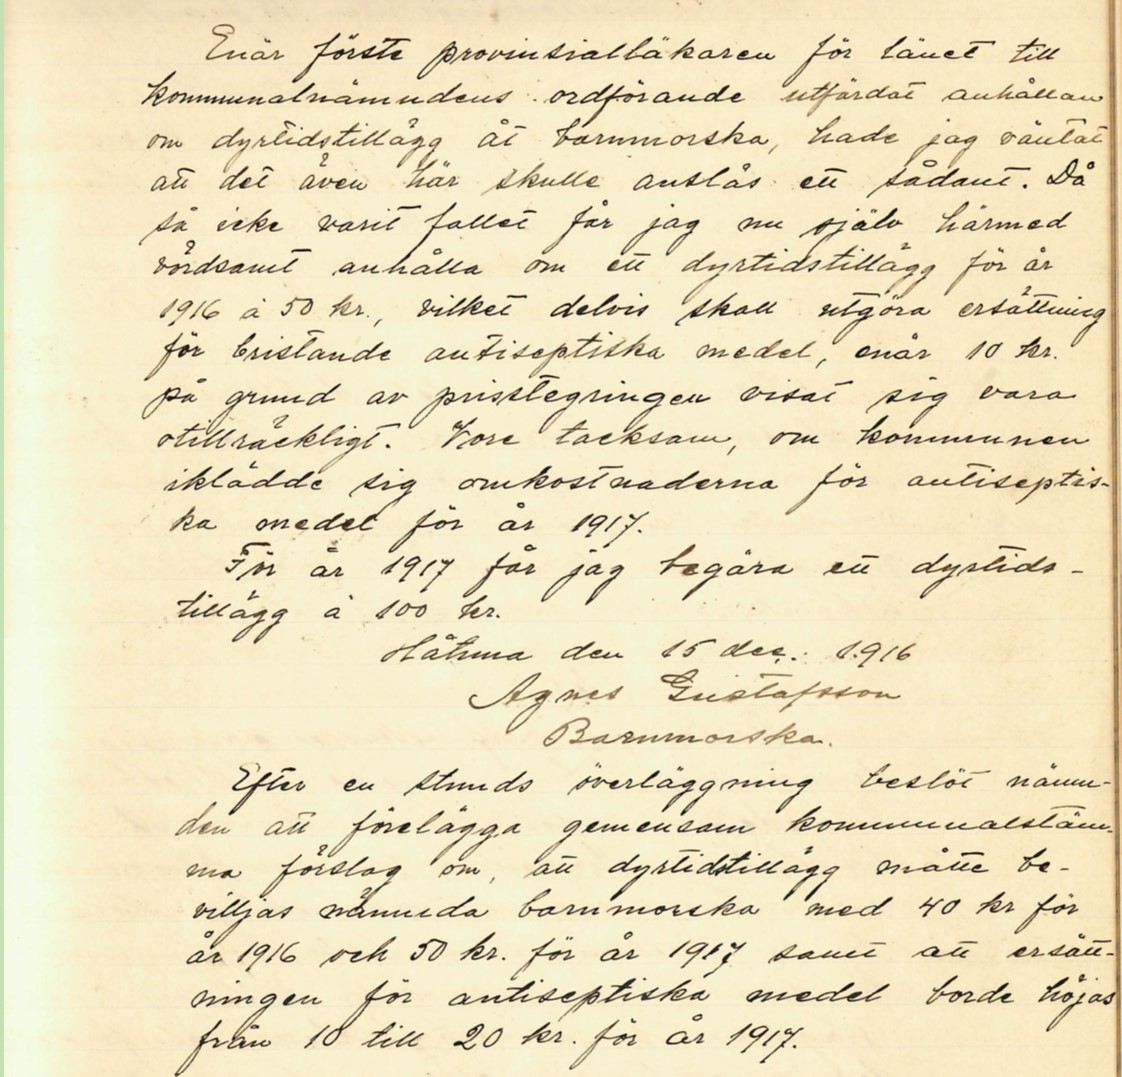 Enär förste provinsialläkaren för länet till
kommunalnämndens ordförande utfärdat anhållan
om dyrtidstillägg åt barnmorska, hade jag väntat
att det även här skulle anslås ett sådant. Då
så icke varit fallet får jag nu själv härmed
vördsamt anhålla om ett dyrtidstillägg för år
1916 à 50 kr., vilket delvis skall utgöra ersättning
för bristande antiseptiska medel, enär 10 kr.
på grund av prisstegringen visat sig vara
otillräckligt. Vore tacksam, om kommunen
iklädde sig omkostnaderna för antiseptis-
ka medel för år 1917.
För år 1917 får jag begära ett dyrtids-
tillägg à 100 kr.
Håtuna den 15 dec. 1916
Agnes Gustafsson
Barnmorska.
Efter en stunds överläggning beslöt nämn-
den att förelägga gemensam kommunalstäm-
ma förslag om, att dyrtidstillägg måtte be-
villjas nämnda barnmorska med 40 kr för
år 1916 och 50 kr. för år 1917 samt att ersätt-
ningen för antiseptiska medel borde höjas
från 10 till 20 kr. för år 1917.